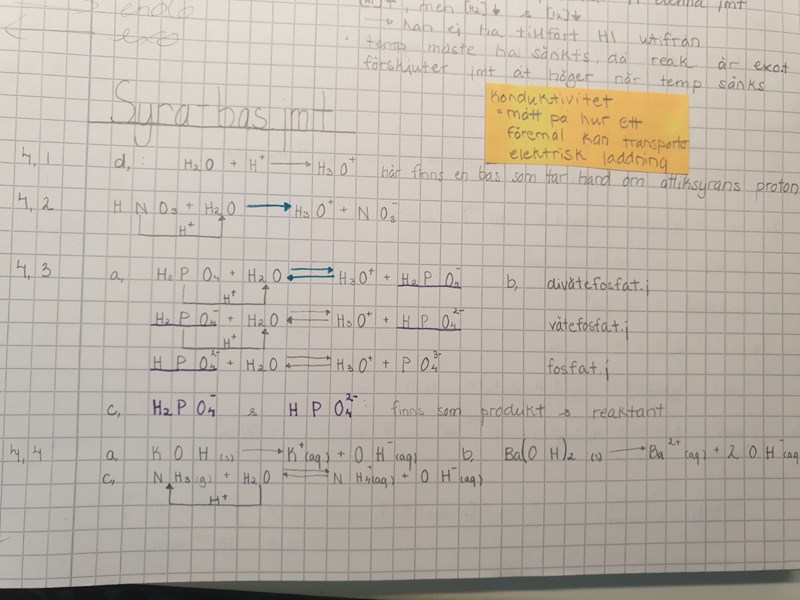 endo
exo
, men [H₂]↓ & [I₂]↓
kan ej ha tillfört HI utifrån
temp måste ha sänkts, då reak. är exot
förskjuter jmt åt höger når temp sänks
Syra-bas jmt
Konduktivitet
= mått på hur ett
föremål kan transporte
elektrisk laddning
4,1 d, : H₂O + H⁺ ⟶ H₃O⁺ här finns en bas som tar hand om ättiksyrans proton
4,2 H N O₃ + H₂O ⟶ H₃O⁺ + N O₃⁻
H⁺
4,3 a, H₃ P O₄ + H₂O ⇌ H₃O⁺ + H₂ P O₄⁻ b, divätefosfat.j
H⁺
H₂ P O₄⁻ + H₂O ⇌ H₃O⁺ + H P O₄²⁻ vätefosfat.j
H⁺
H P O₄²⁻ + H₂O ⇌ H₃O⁺ + P O₄³⁻ fosfat.j
c, H₂ P O₄⁻ & H P O₄²⁻ : finns som produkt & reaktant
4,4 a, K O H (s) ⟶ K⁺(aq) + O H⁻(aq) b, Ba(O H)₂ (s) ⟶ Ba²⁺(aq) + 2 O H⁻(aq
c, N H₃(g) + H₂O ⇌ N H₄⁺(aq) + O H⁻(aq)
H⁺